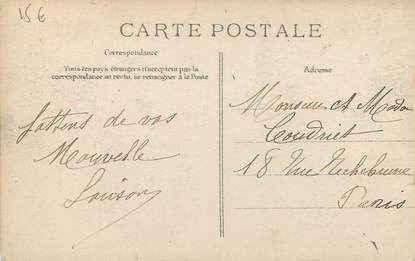 15€
CARTE POSTALE
Correspondance
Tous les pays étrangers n'acceptent pas la
correspondance au recto, se renseigner à la Poste
J'attens de vos
Nouvelle
Louison
Adresse
Monsieur et Madam
Coudriet
18 Rue
Paris